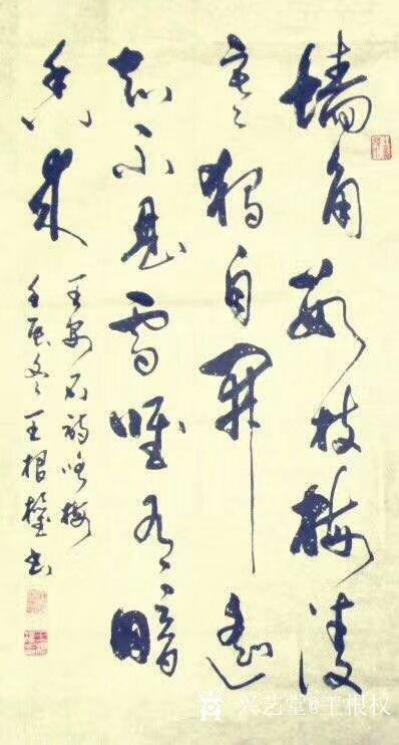 墙角数枝梅凌
寒独自開遥
知不見雪唯有暗
香来
王安石詩咏梅
壬辰冬王根權书
兴艺堂@王根权